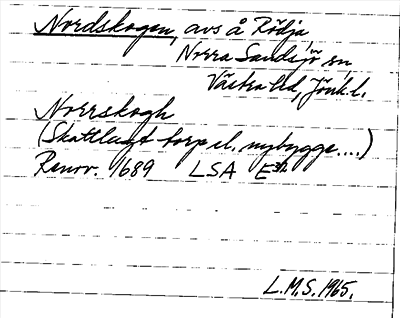 Nordskogen, avs å Rödja,
Norra Sandsjö sn
Västra hd, Jönk. l.
Norrskogh
(Skattlagt torp el. nybygge....)
Renov. 1689 LSA E
L.M.S. 1965.